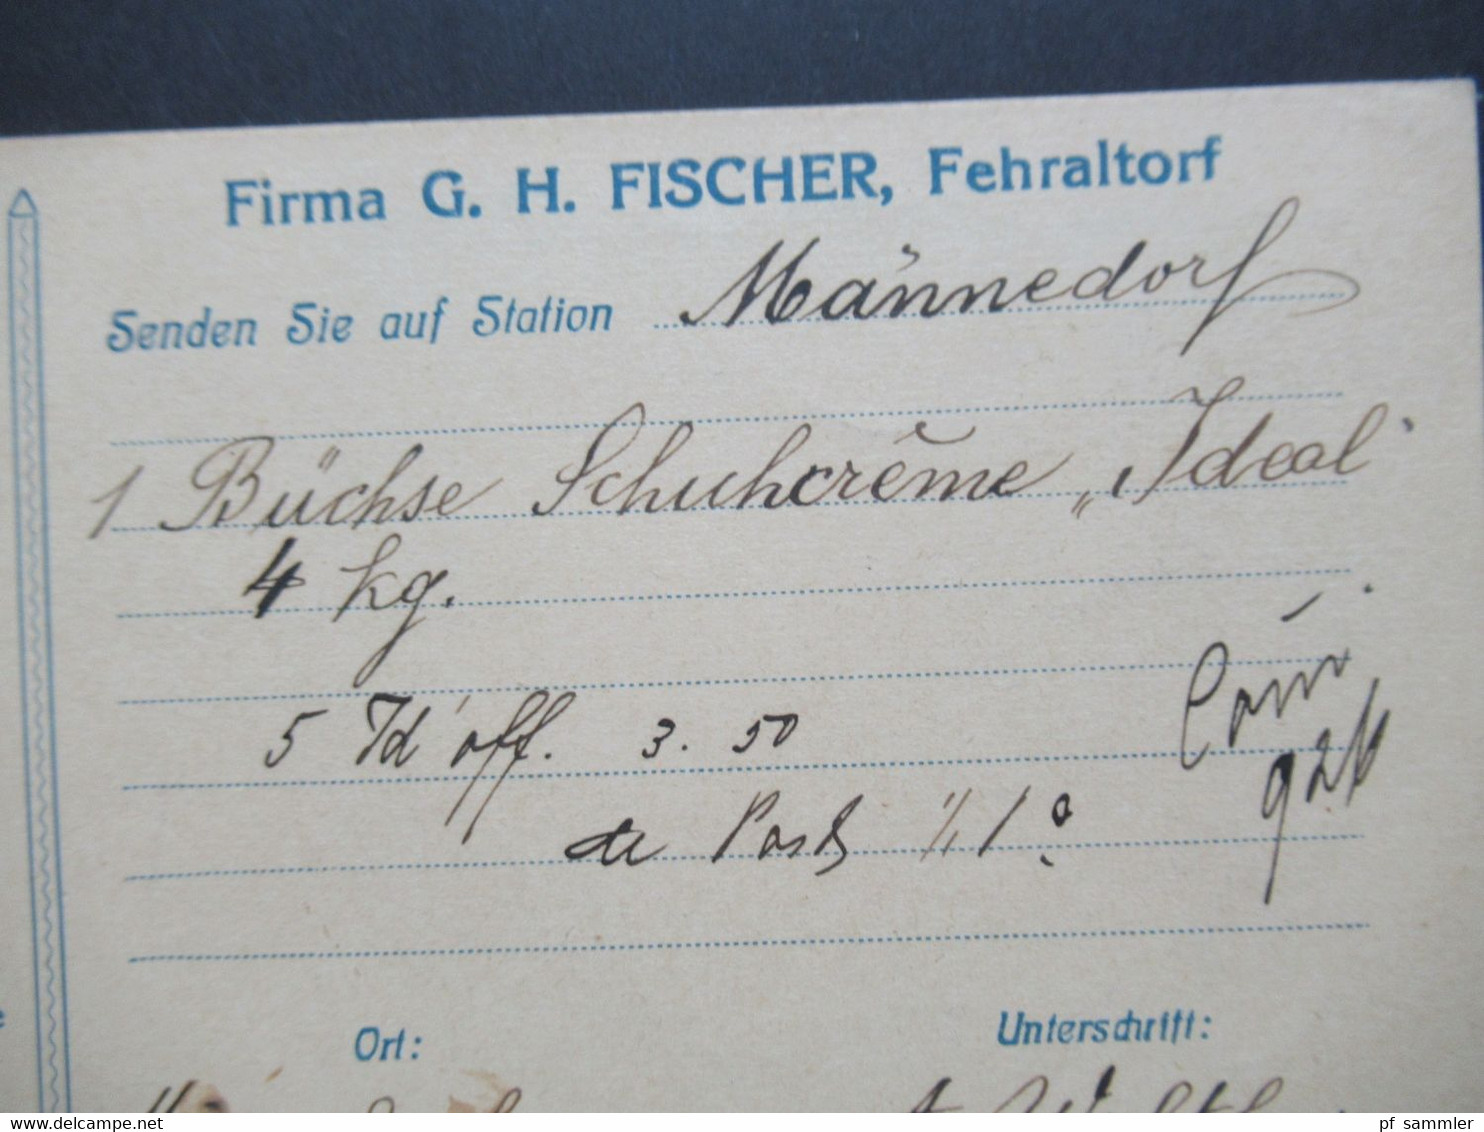 Firma G. H. FISCHER, Fehraltorf
Senden Sie auf Station Männedorf
1 Büchse Schuhcrême „Ideal“
4 kg.
5 Id' off. 3. 50
Post
926
Ort:
Unterschrift:
pf sammler